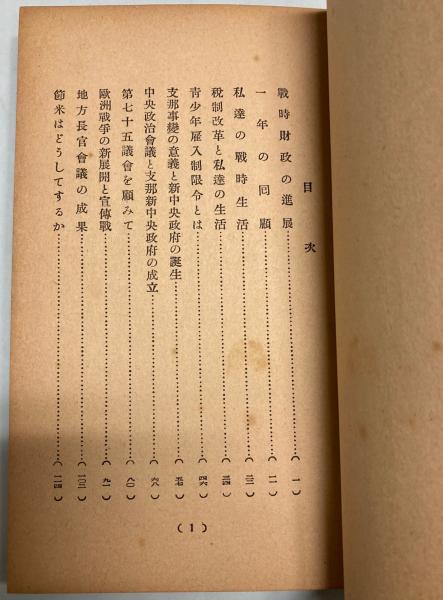 目次
戰時財政の進展………(一)
一年の回顧………(一一)
私達の戰時生活………(二三)
稅制改革と私達の生活………(三四)
靑少年雇入制限令とは………(四六)
支那事變の意義と新中央政府の誕生………(五七)
中央政治會議と支那新中央政府の成立………(六八)
第七十五議會を顧みて………(八〇)
歐洲戰爭の新展開と宣傳戰………(九一)
地方長官會議の成果………(一〇三)
節米はどうしてするか………(一一四)
(1)